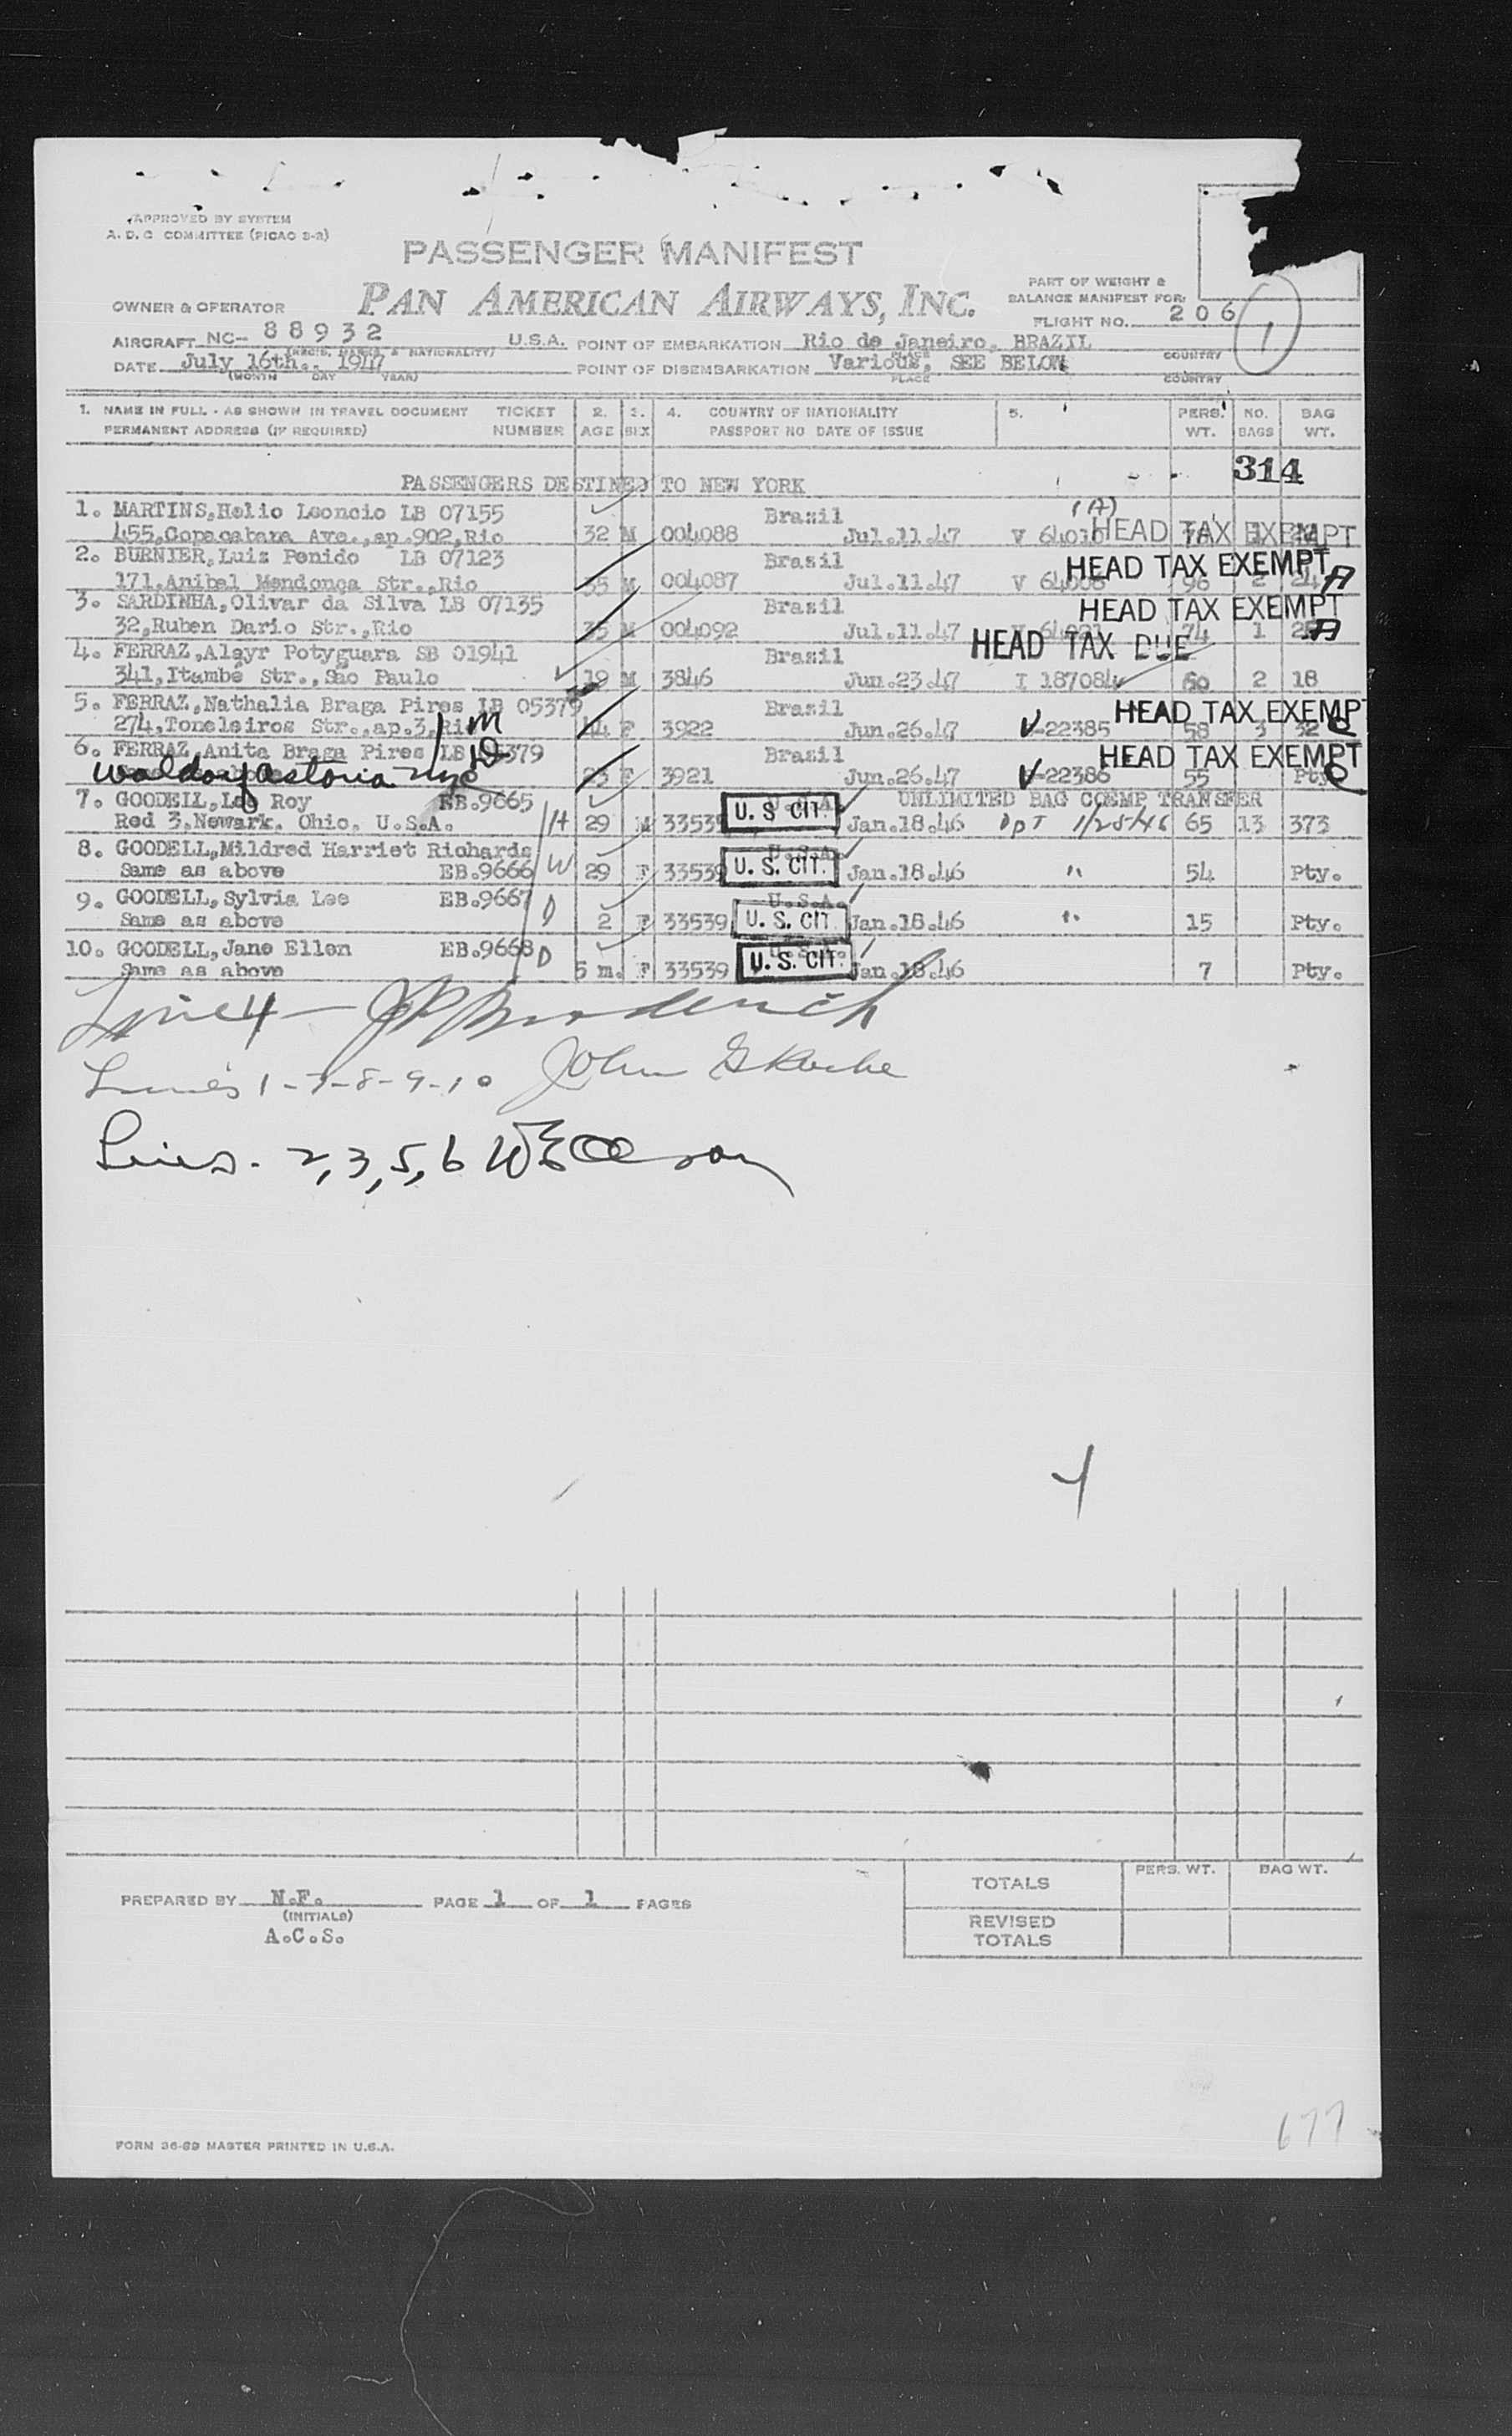 APPROVED BY SYSTEM
A. D. C COMMITTEE (PICAO 2-2)
PASSENGER MANIFEST
PAN AMERICAN AIRWAYS, INC.
PART OF WEIGHT &
BALANCE MANIFEST FOR:
FLIGHT NO. 206
1
OWNER & OPERATOR
AIRCRAFT NC- 88932 U.S.A. POINT OF EMBARKATION Rio de Janeiro, BRAZIL
(REGIS. MARKS & NATIONALITY) PLACE COUNTRY
DATE July 16th., 1947 POINT OF DISEMBARKATION Various, SEE BELOW
(MONTH DAY YEAR) PLACE COUNTRY
1. NAME IN FULL - AS SHOWN IN TRAVEL DOCUMENT TICKET 2. 3. 4. COUNTRY OF NATIONALITY 5. PERS. NO. BAG
PERMANENT ADDRESS (IF REQUIRED) NUMBER AGE SEX PASSPORT NO DATE OF ISSUE WT. BAGS WT.
314
PASSENGERS DESTINED TO NEW YORK
1. MARTINS,Helio Leoncio LB 07155 Brasil (A)
455,Copacabana Ave.,ap.902,Rio 32 M 004088 Jul.11.47 HEAD TAX EXEMPT
2. BURNIER,Luiz Penido LB 07123 Brasil HEAD TAX EXEMPT
171,Anibal Mendonça Str.,Rio 35 M 004087 Jul.11.47 96 2 24 A
3. SARDINHA,Olivar da Silva LB 07135 Brasil HEAD TAX EXEMPT
32,Ruben Dario Str.,Rio 35 M 004092 Jul.11.47 74 1 A
4. FERRAZ,Aleyr Potyguara SB 01941 Brasil HEAD TAX DUE
341,Itambé Str.,Sao Paulo 19 M 3846 Jun.23.47 I 187084 60 2 18
5. FERRAZ,Nathalia Braga Pires LB 05379 Brasil HEAD TAX EXEMPT
274,Toneleiros Str.,ap.3,Rio M 44 F 3922 Jun.26.47 V-22385 58 3 32 C
6. FERRAZ,Anita Braga Pires LB 05379 D Brasil HEAD TAX EXEMPT
Waldorf Astoria NYC 23 F 3921 Jun.26.47 V-22386 55 Pty C
7. GOODELL,Leo Roy EB.9665 U.S.A. UNLIMITED BAG COEMP TRANSFER
Red 3.Newark. Ohio. U.S.A. H 29 M 33539 U. S CIT. Jan.18.46 DpT 1/25/46 65 13 373
8. GOODELL,Mildred Harriet Richards U.S.A.
Same as above EB.9666 W 29 F 33539 U. S. CIT. Jan.18.46 " 54 Pty.
9. GOODELL,Sylvia Lee EB.9667 U.S.A.
Same as above D 2 F 33539 U. S. CIT. Jan.18.46 " 15 Pty.
10. GOODELL,Jane Ellen EB.9668
Same as above D 5 m. F 33539 U. S. CIT. Jan.18.46 7 Pty.
Line 4 - J P Broderick
Lines 1-7-8-9-10 John G
Lines. 2,3,5,6
PREPARED BY N.F. PAGE 1 OF 1 PAGES
(INITIALS)
A.C.S.
TOTALS PERS. WT. BAG WT.
REVISED
TOTALS
677
FORM 36-89 MASTER PRINTED IN U.S.A.